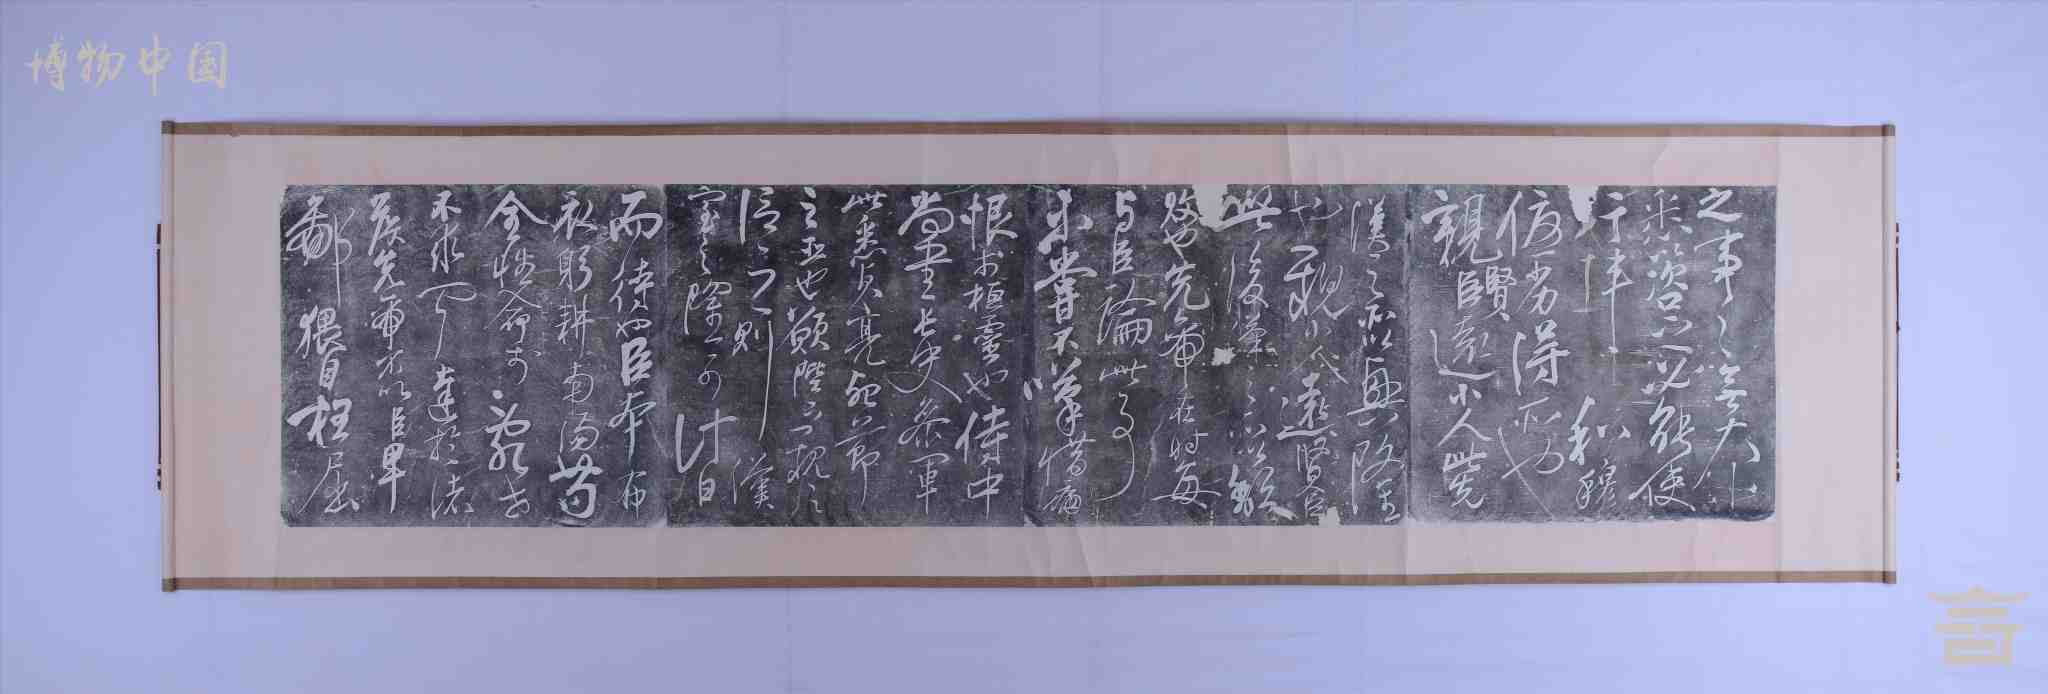 博物中国
之事事無大小
悉以咨之必能使
行陣和穆
優劣得所也
親賢臣遠小人此先
漢之所以興隆
也親小人遠賢臣
此後漢之所以傾
頹也先帝在時每
與臣論此事
未嘗不嘆惜痛
恨於桓靈也侍中
尚書長史參軍
此悉貞亮死節
之臣也願陛下親之
信之則漢
室之隆可計日
而待也臣本布
衣躬耕南陽苟
全性命於亂世
不求聞達於諸
侯先帝不以臣卑
鄙猥自枉屈